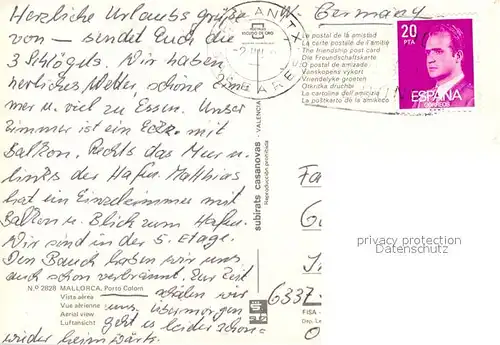 Herzliche Urlaubsgrüße
von – sendet Euch die
3 Schlögels. Wir haben
herrliches Wetter, schöne Zim
mer u. viel zu Essen. Unser
Zimmer ist ein Eckz. mit
Balkon. Rechts das Meer u.
links der Hafen. Matthias
hat ein Einzelzimmer mit
Balkon u. Blick zum Hafen.
Wir sind in der 5. Etage.
Den Bauch haben wir uns
auch schon verbrannt. Zur Zeit
schälen wir
uns, übermorgen
geht es leider schon
wieder heimwärts.
N.º 2828 MALLORCA. Porto Colom
Vista aérea
Vue aérienne
Aerial view
Luftansicht
subirats casanovas - VALENCIA
Reproducción prohibida
W. Germany
La postal de la amistad
La carte postale de l'amitié
The friendship post card
Die Freundschaftskarte
O postal de amizade
Vanskapens vykort
Vriendelyke groeten
Otkritka druzhbi
La cartolina dell'amicizia
La poŝtkarto de la amikeco
20
PTA
ESPAÑA
CORREOS
6337
FISA -
Dep. Le
privacy protection
Datenschutz